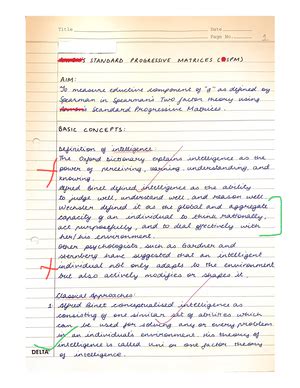 Title
Date
Page No. 1
STANDARD PROGRESSIVE MATRICES (SPM)
AIM:
To measure eductive component of "g" as defined by
Spearman in Spearman's Two factor theory using
Standard Progressive Matrices.
BASIC CONCEPTS:
Definition of intelligence:
The Oxford Dictionary explains intelligence as the
power of perceiving, learning, understanding, and
knowing.
Alfred Binet defined intelligence as the ability
to judge well, understand well, and reason well.
Wechsler defined it as the global and aggregate
capacity of an individual to think rationally,
act purposefully, and to deal effectively with
her/his environment.
Other psychologists, such as Gardner and
Sternberg have suggested that an intelligent
individual not only adapts to the environment
but also actively modifies or shapes it.
Classical Approaches:
1 Alfred Binet conceptualised intelligence as
consisting of one similar set of abilities which
can be used for solving any or every problem
in an individual's environment. His theory of
intelligence is called Uni or one factor theory
of intelligence.
DELTA